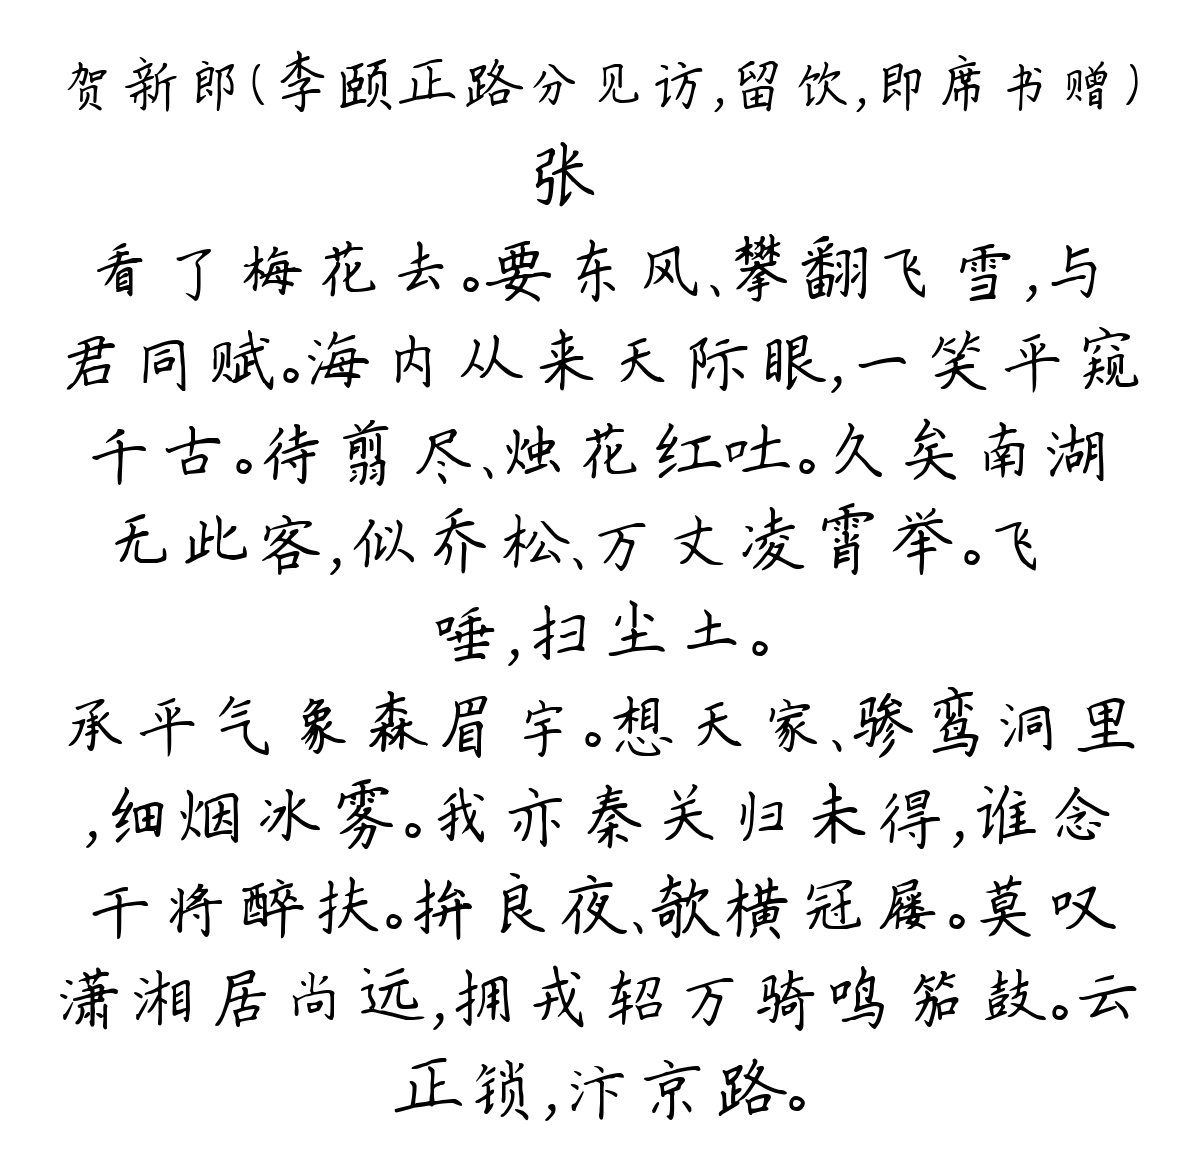 贺新郎(李颐正路分见访,留饮,即席书赠)
张
看了梅花去。要东风、攀翻飞雪,与
君同赋。海内从来天际眼,一笑平窥
千古。待翦尽、烛花红吐。久矣南湖
无此客,似乔松、万丈凌霄举。飞
唾,扫尘土。
承平气象森眉宇。想天家、骖鸾洞里
,细烟冰雾。我亦秦关归未得,谁念
干将醉扶。拚良夜、欹横冠屦。莫叹
潇湘居尚远,拥戎轺万骑鸣笳鼓。云
正锁,汴京路。